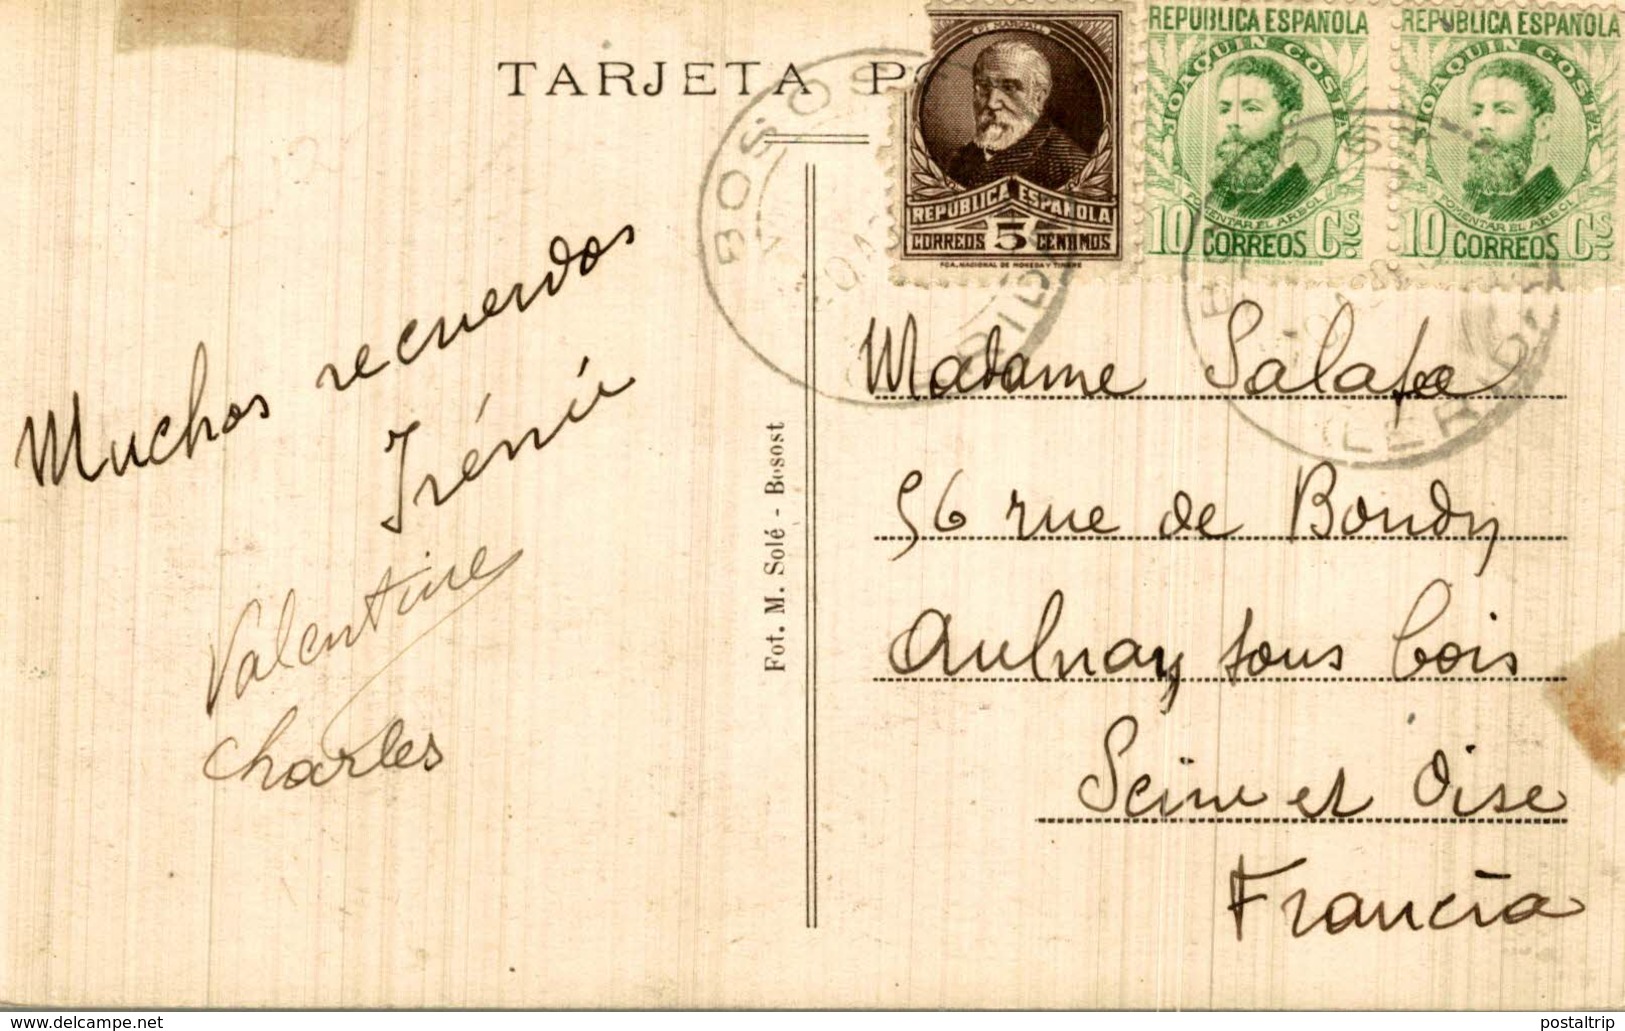 TARJETA
PI MARGALL
REPÚBLICA ESPAÑOLA
CORREOS 5 CENTIMOS
FCA. NACIONAL DE MONEDA Y TIMBRE
REPUBLICA ESPAÑOLA
JOAQUIN COSTA
FOMENTAR EL ARBOL
10 CORREOS Cs
REPUBLICA ESPAÑOLA
JOAQUIN COSTA
FOMENTAR EL ARBOL
10 CORREOS Cs
BOSOST
LERIDA
Muchos recuerdos
Irénée
Valentine
Charles
Fot. M. Solé - Bosost
Madame
56 rue de Bondy
Aulnay sous bois
Seine et Oise
Francia
www.delcampe.net
postaltrip